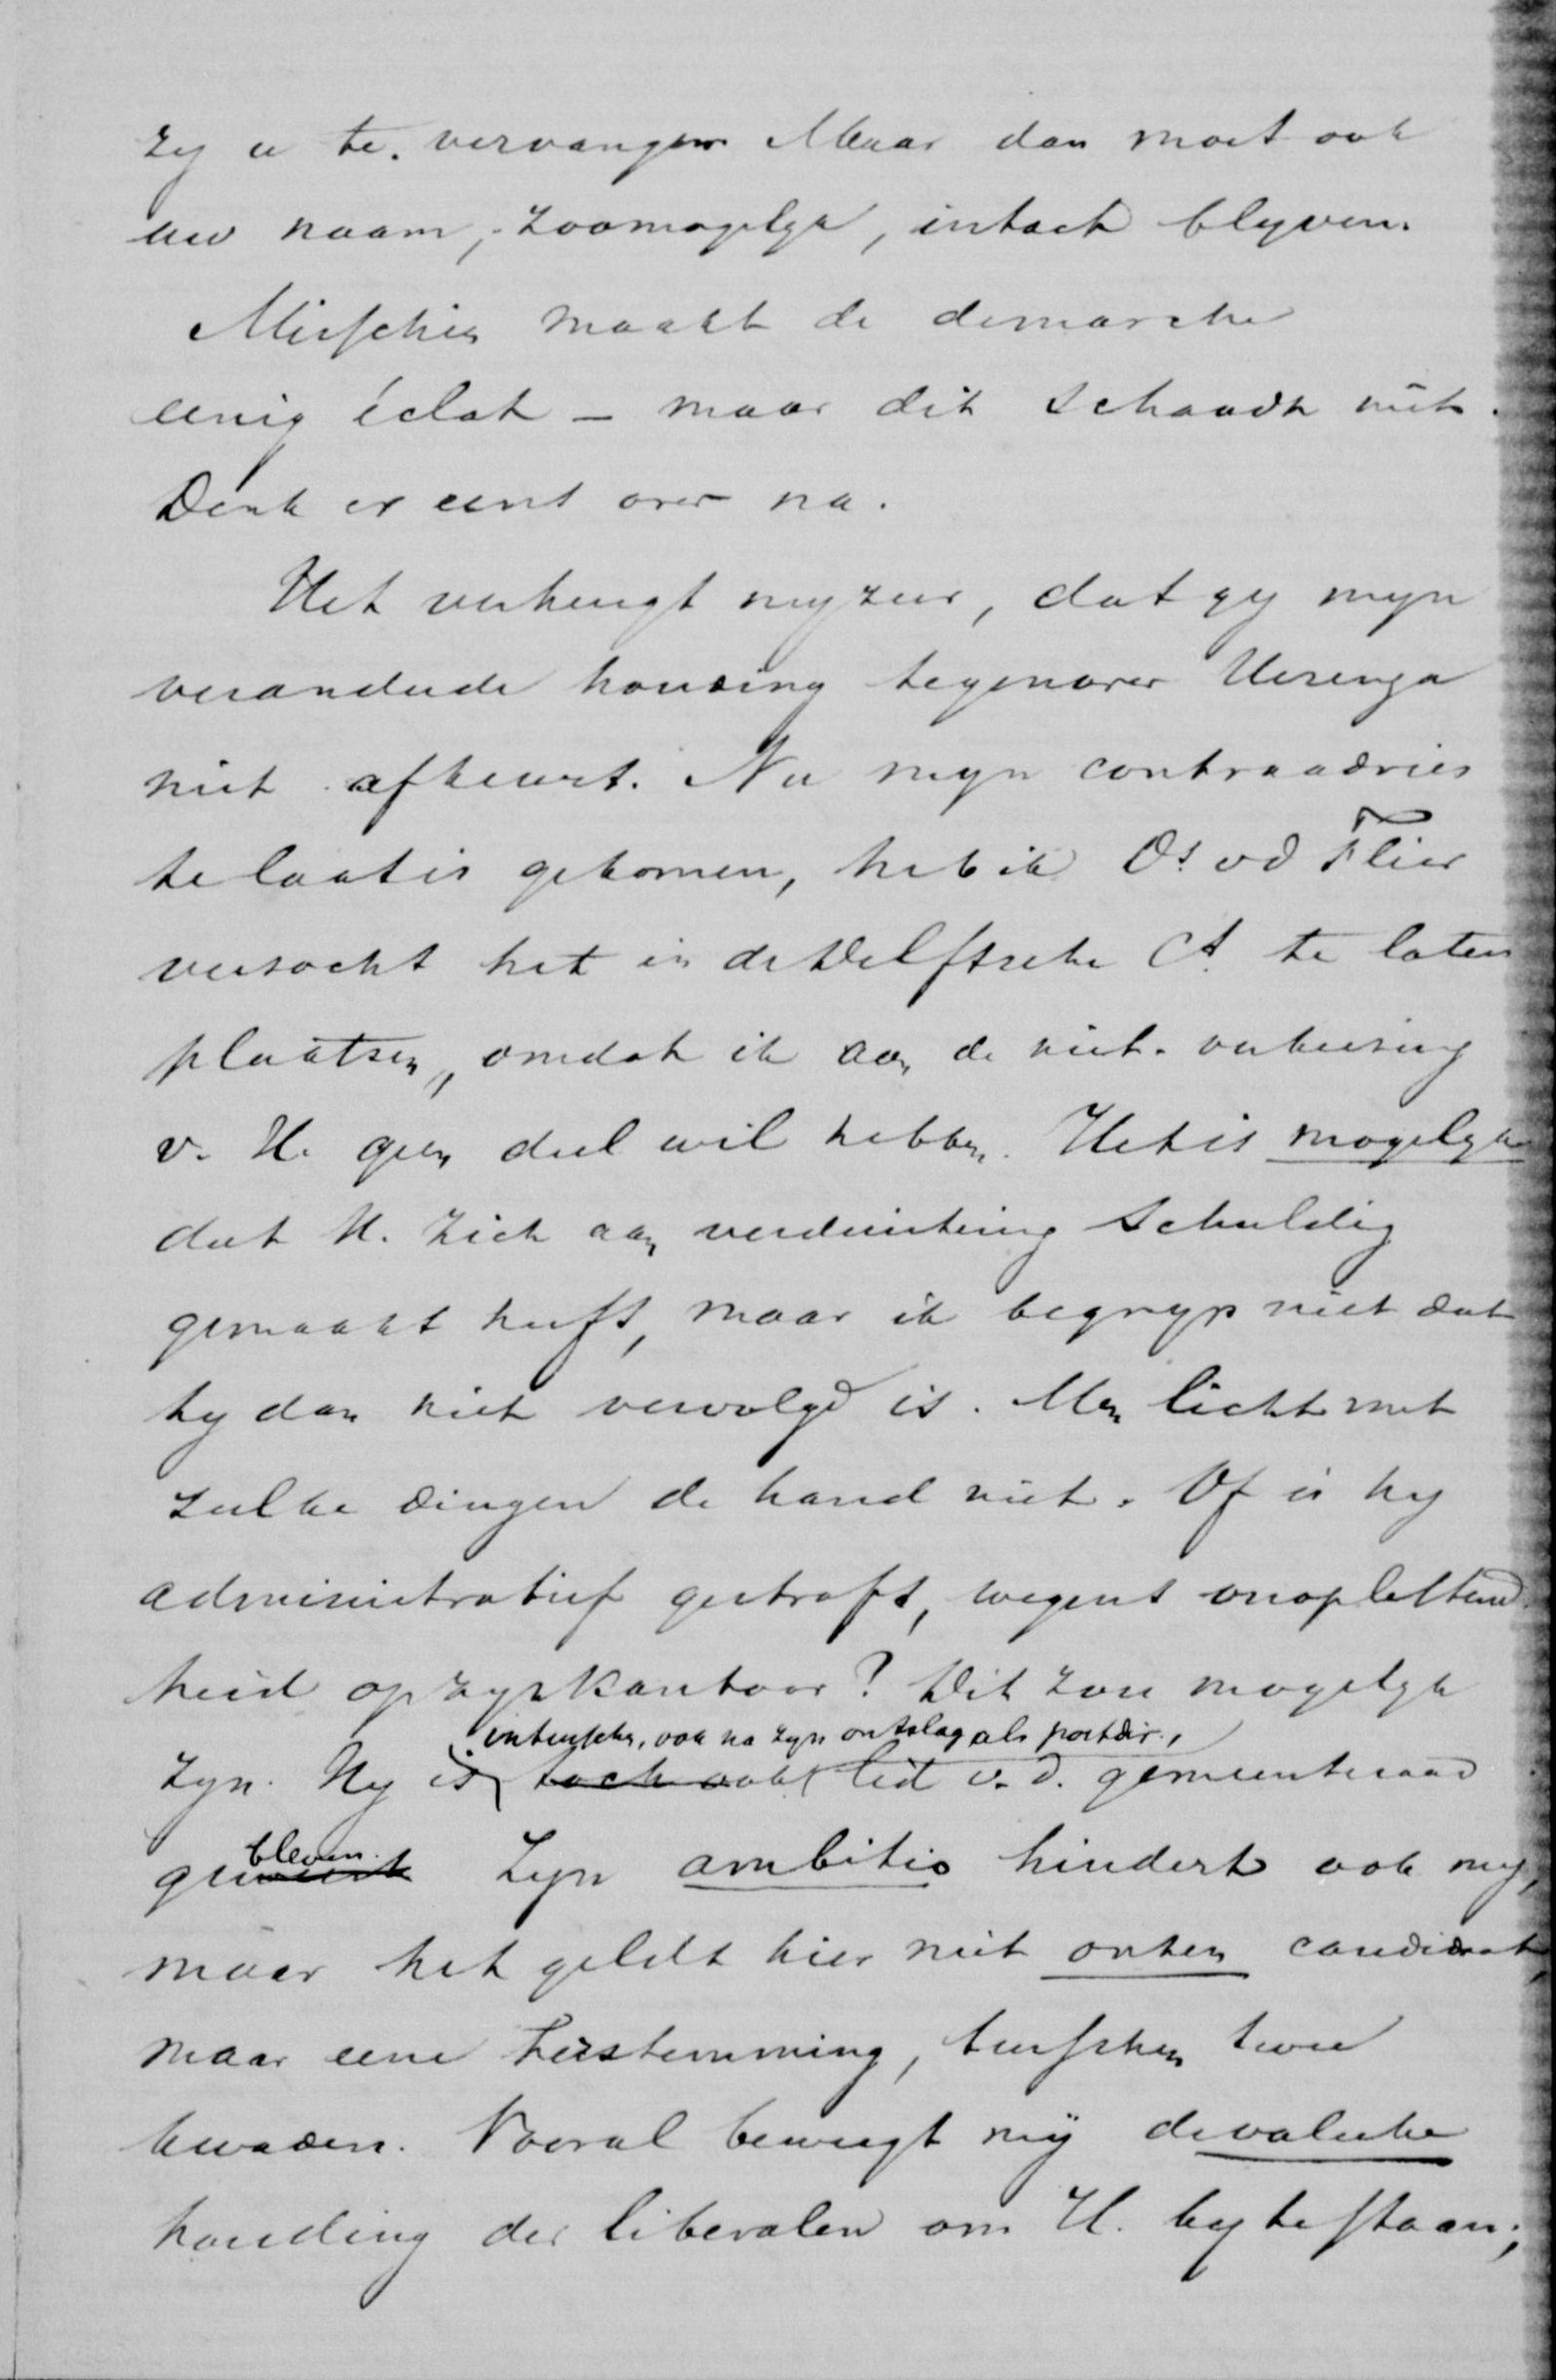 zij u te vervangen. Maar dan moet ook
uw naam, zoomogelijk, intact blijven.
Misschien maakt de demarche
eenig éclat – maar dit schaadt niet.
Denk er eens over na.
Het verheugt mij zeer, dat gij mijn
veranderde houding tegenover Heringa
niet afkeurt. Nu mijn contraadvies
te laat is gekomen, heb ik Ds. v d Flier
verzocht het in de Delftsche Ct. te laten
plaatsen, omdat ik aan de niet-verkiezing
v. H. geen deel wil hebben. Het is mogelijk
dat H. zich aan verduistering schuldig
gemaakt heeft, maar ik begrijp niet dat
hij dan niet vervolgd is. Men licht met
zulke dingen de hand niet. Of is hij
administratief gestraft, wegens onoplettend
heid op zijn kantoor? Dit zou mogelijk
intusschen, ook na zijn ontslag als postdir.,
zijn. Hij is toch ook lid v. d. gemeenteraad
bleven.
geweest Zijn ambitie hindert ook mij,
maar het geldt hier niet onzen candidaat,
maar eene herstemming, tusschen twee
kwaden. Vooral beweegt mij de valsche
houding der liberalen om H. bij te staan;